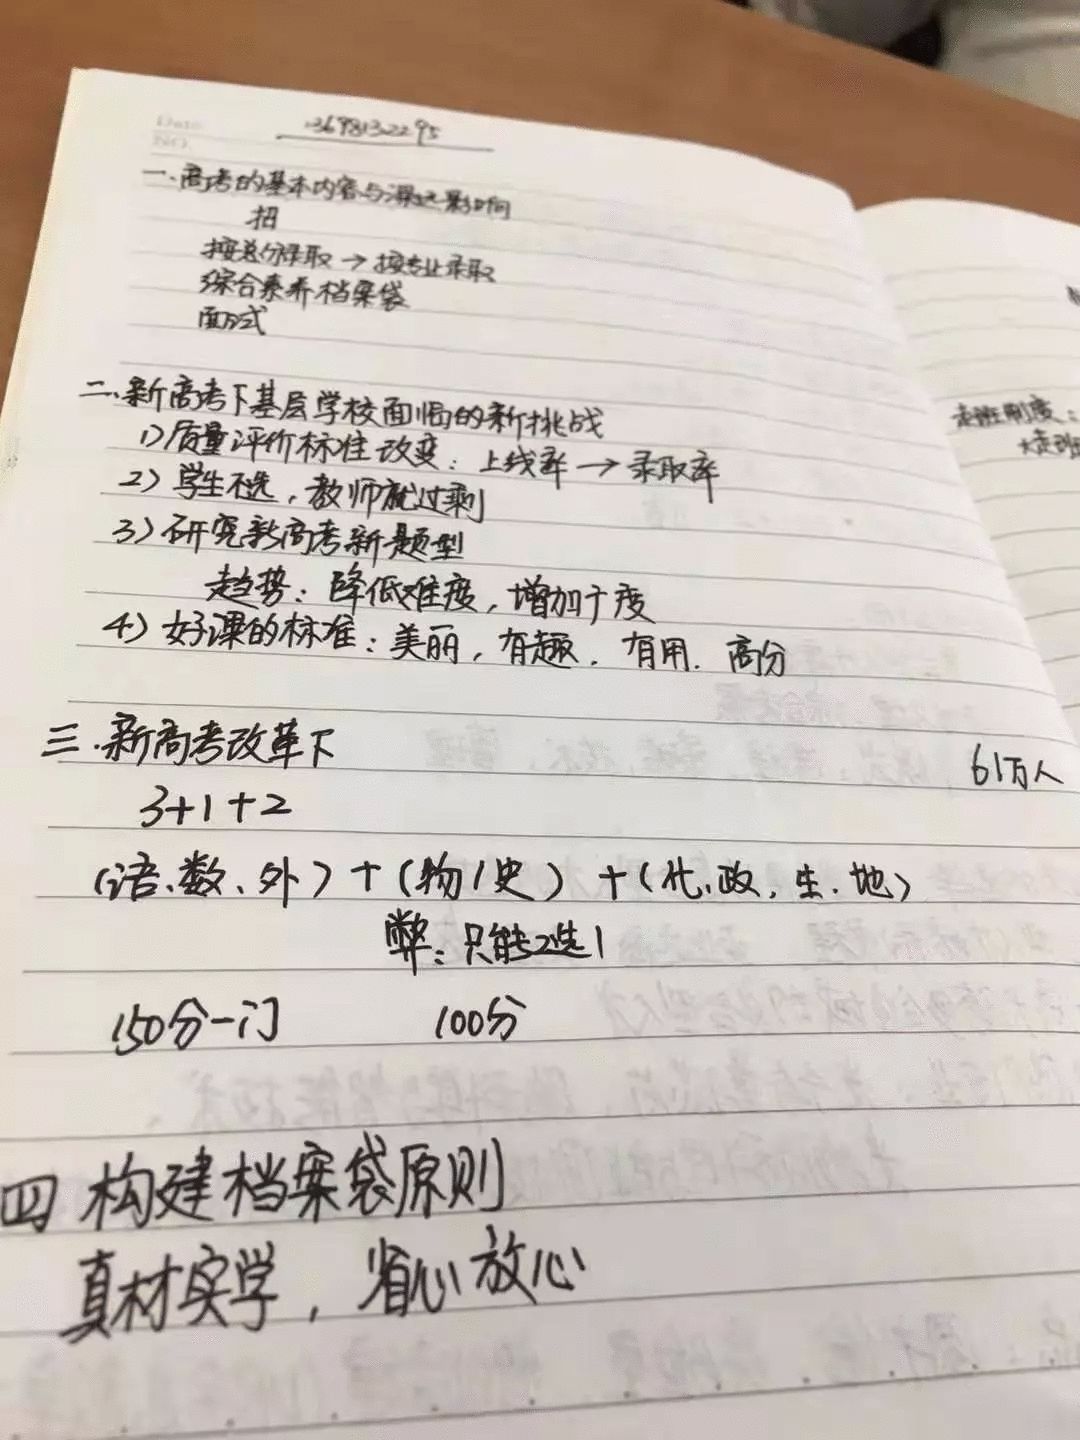 Date
NO.
13698132295
一.高考的基本内容与深远影响
招
按总分录取→按专业录取
综合素养档案袋
面试
二.新高考下基层学校面临的新挑战
1)质量评价标准改变：上线率→录取率
2)学生不选，教师就过剩
3)研究新高考新题型
趋势：降低难度，增加广度
4)好课的标准：美丽，有趣，有用.高分
三.新高考改革下
3+1+2
(语、数、外)+(物/史)+(化、政，生、地)
弊：只能2选1
150分一门 100分
四 构建档案袋原则
真材实学，省心放心
走班制度：
大走班
61万人